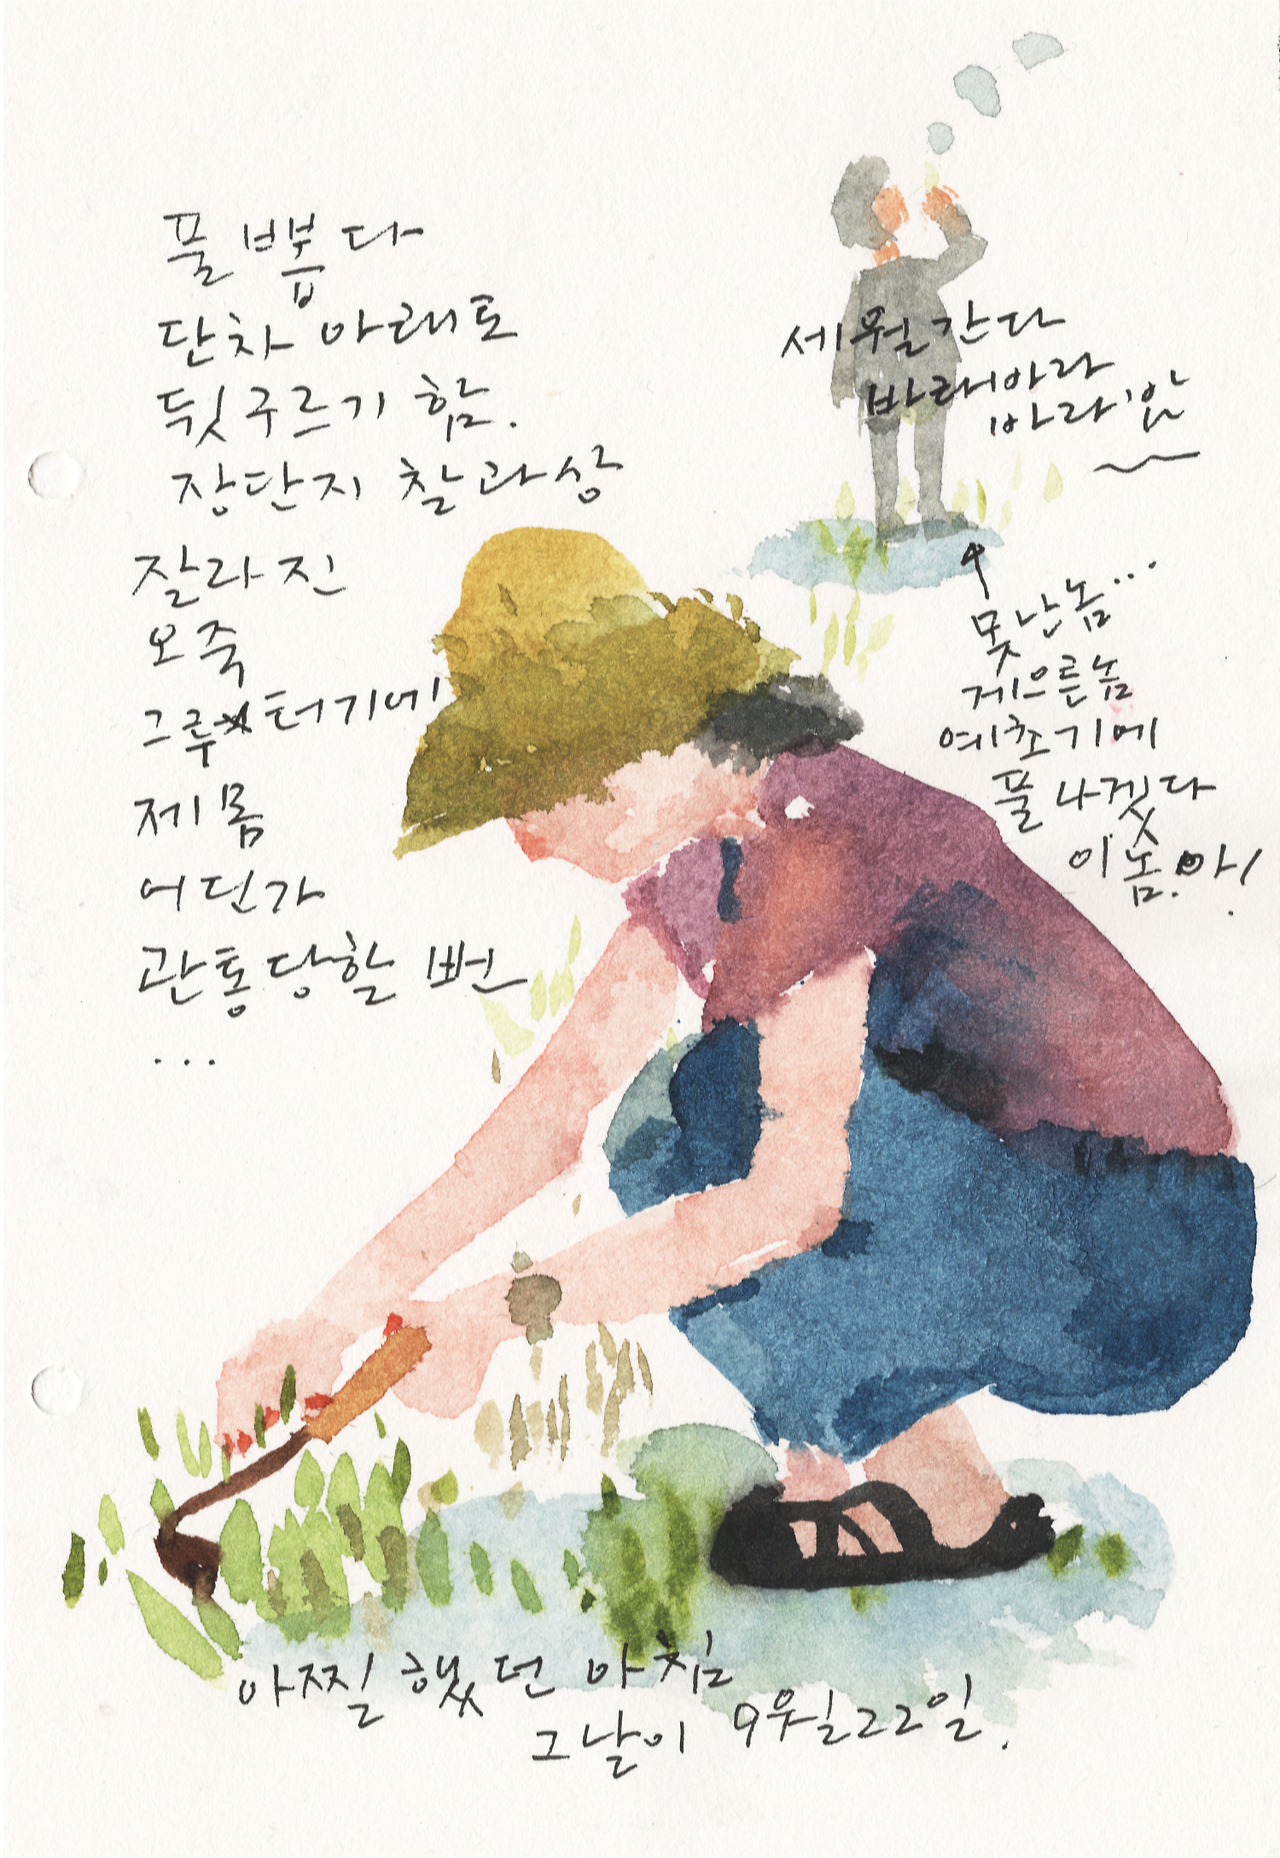 풀 뽑다
단차 아래로
뒷구르기 함.
장단지 찰과상
잘라진
오죽
그루터기에
제 몸
어딘가
관통당할 뻔
...
세월 간다
바래바라
바라
못난놈...
게으른놈
예초기에
풀 나겠다
이놈.아!
아찔했던 아침
그날이 9월22일.